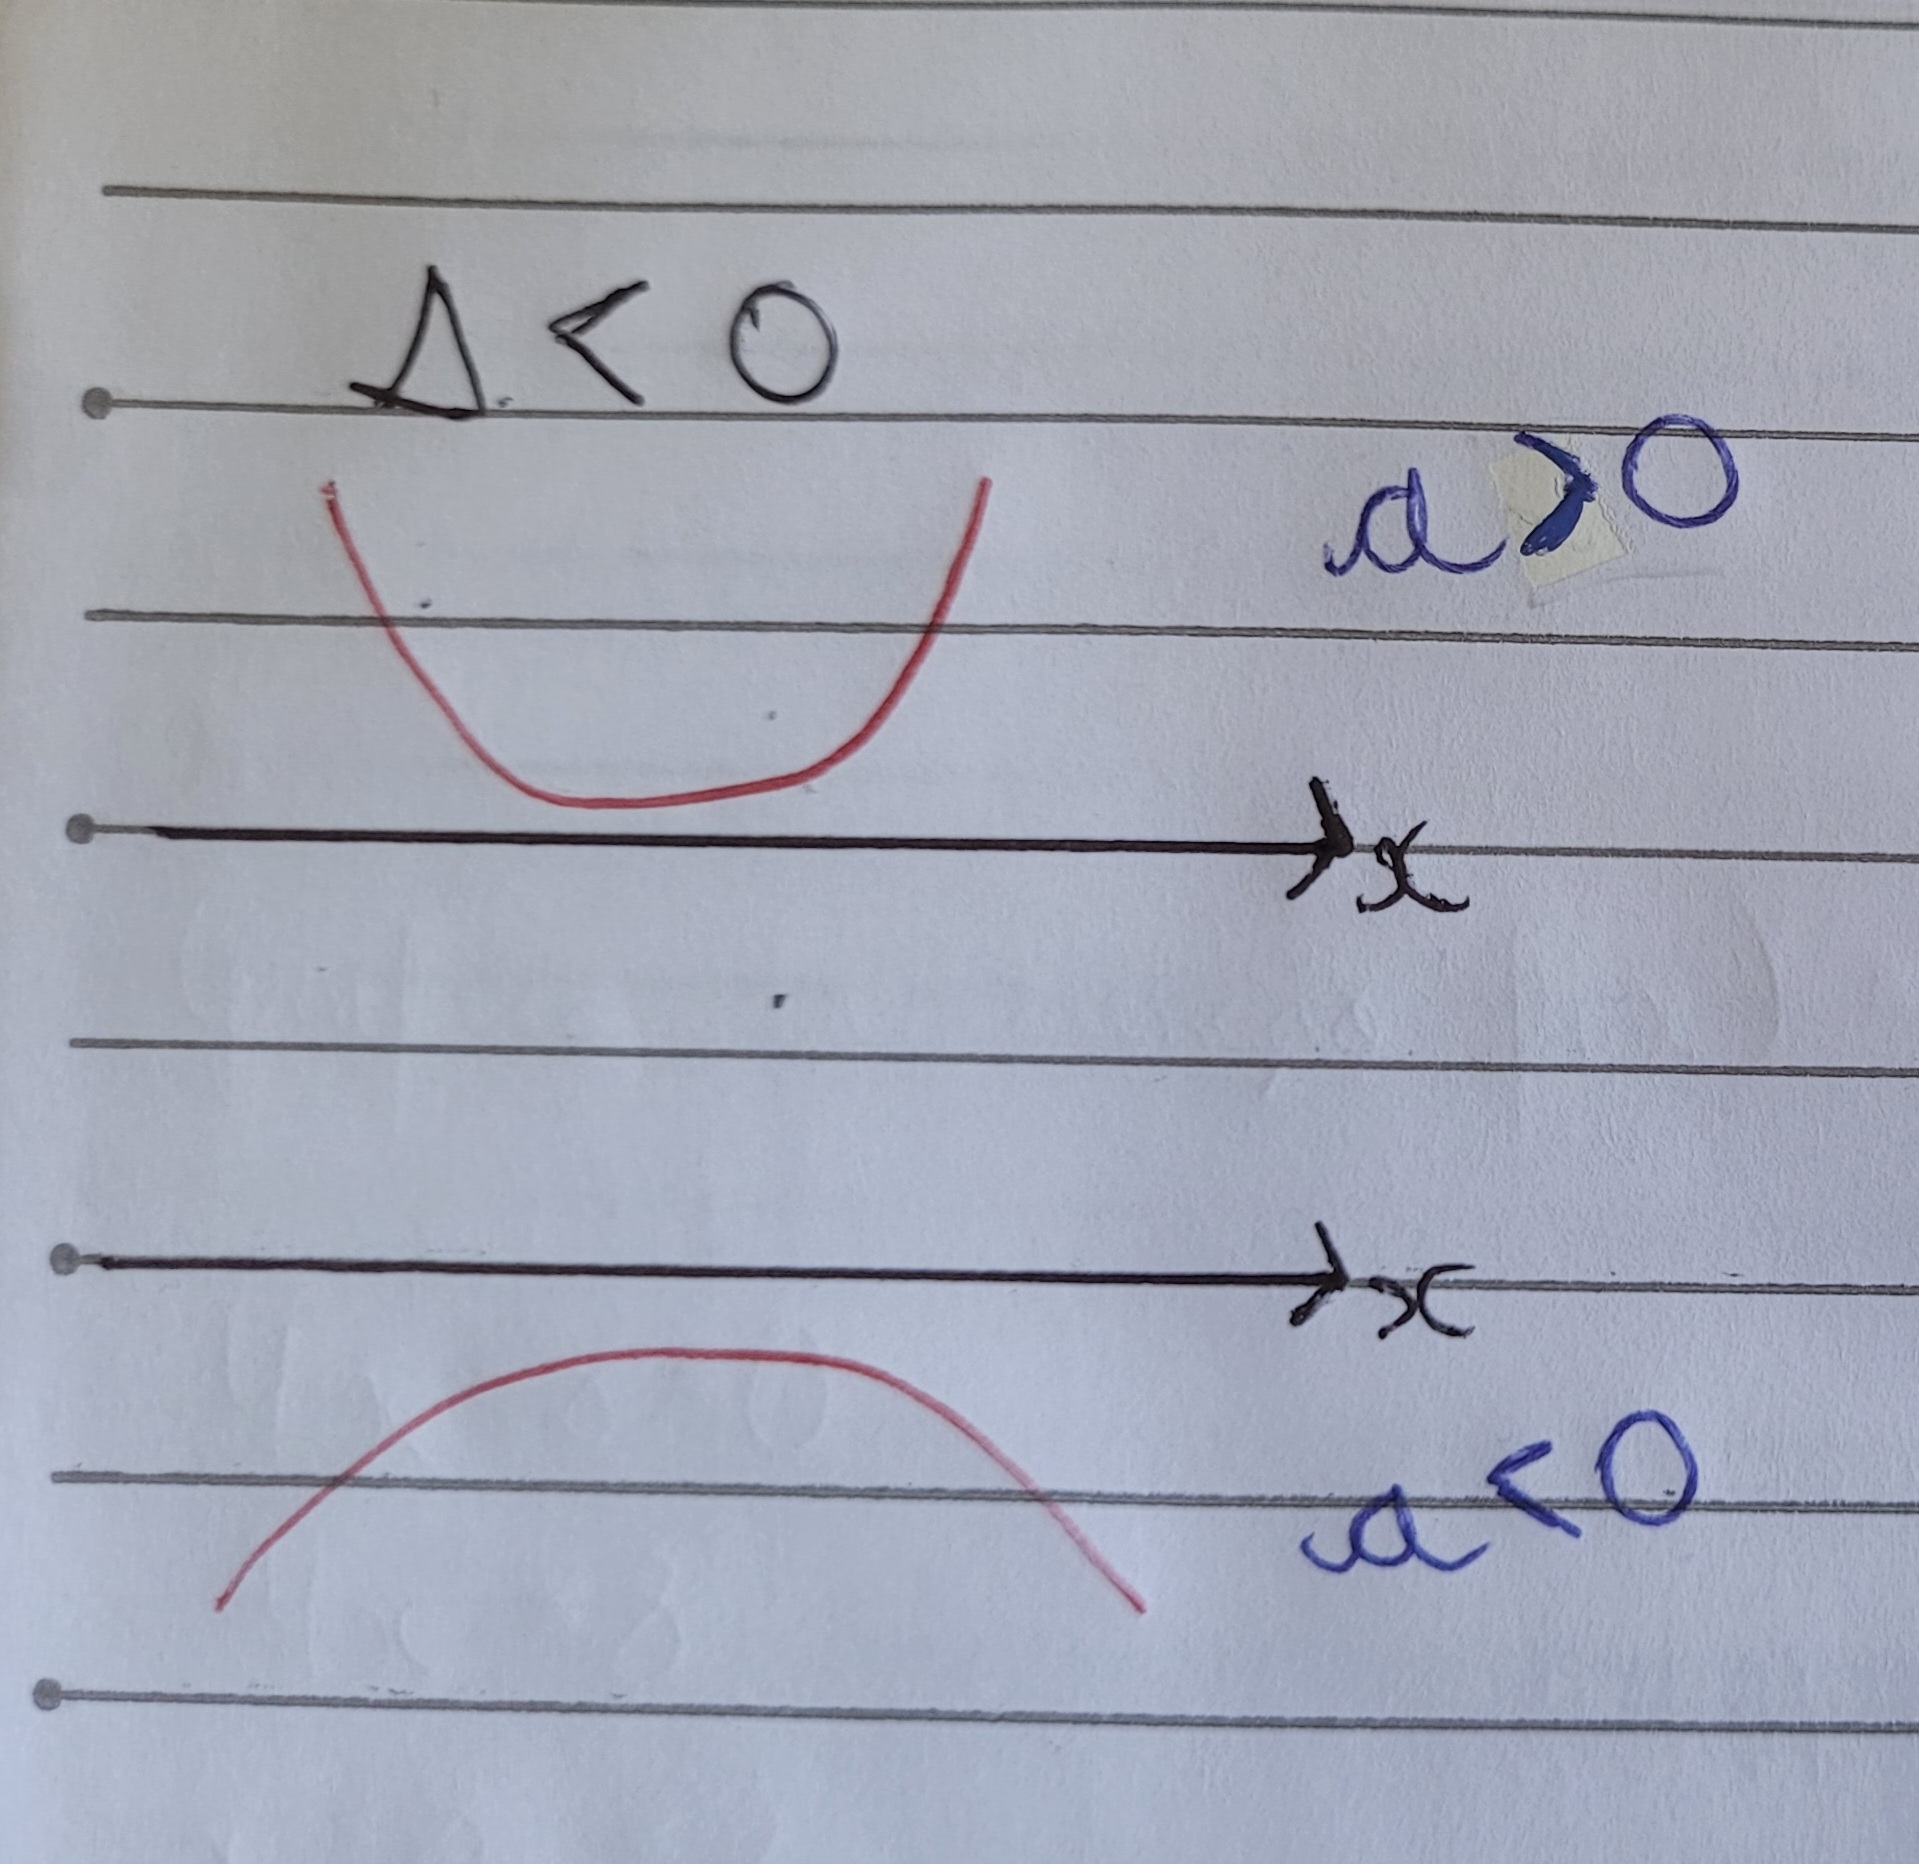 Δ < 0
a > 0
x
x
a < 0